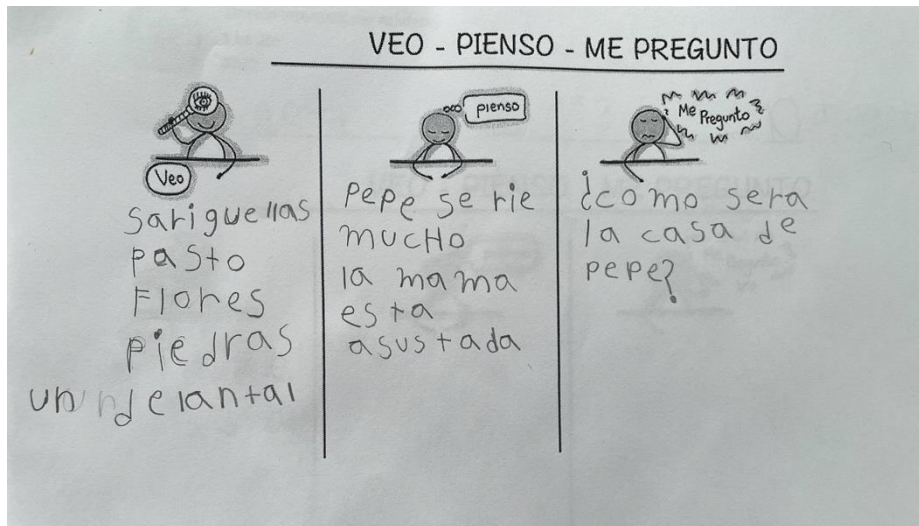 VEO - PIENSO - ME PREGUNTO
Veo
sariguellas
pasto
Flores
piedras
un delantal
pienso
pepe se rie
mucHo
la mama
esta
asustada
Me
Pregunto
¿como sera
la casa de
pepe?